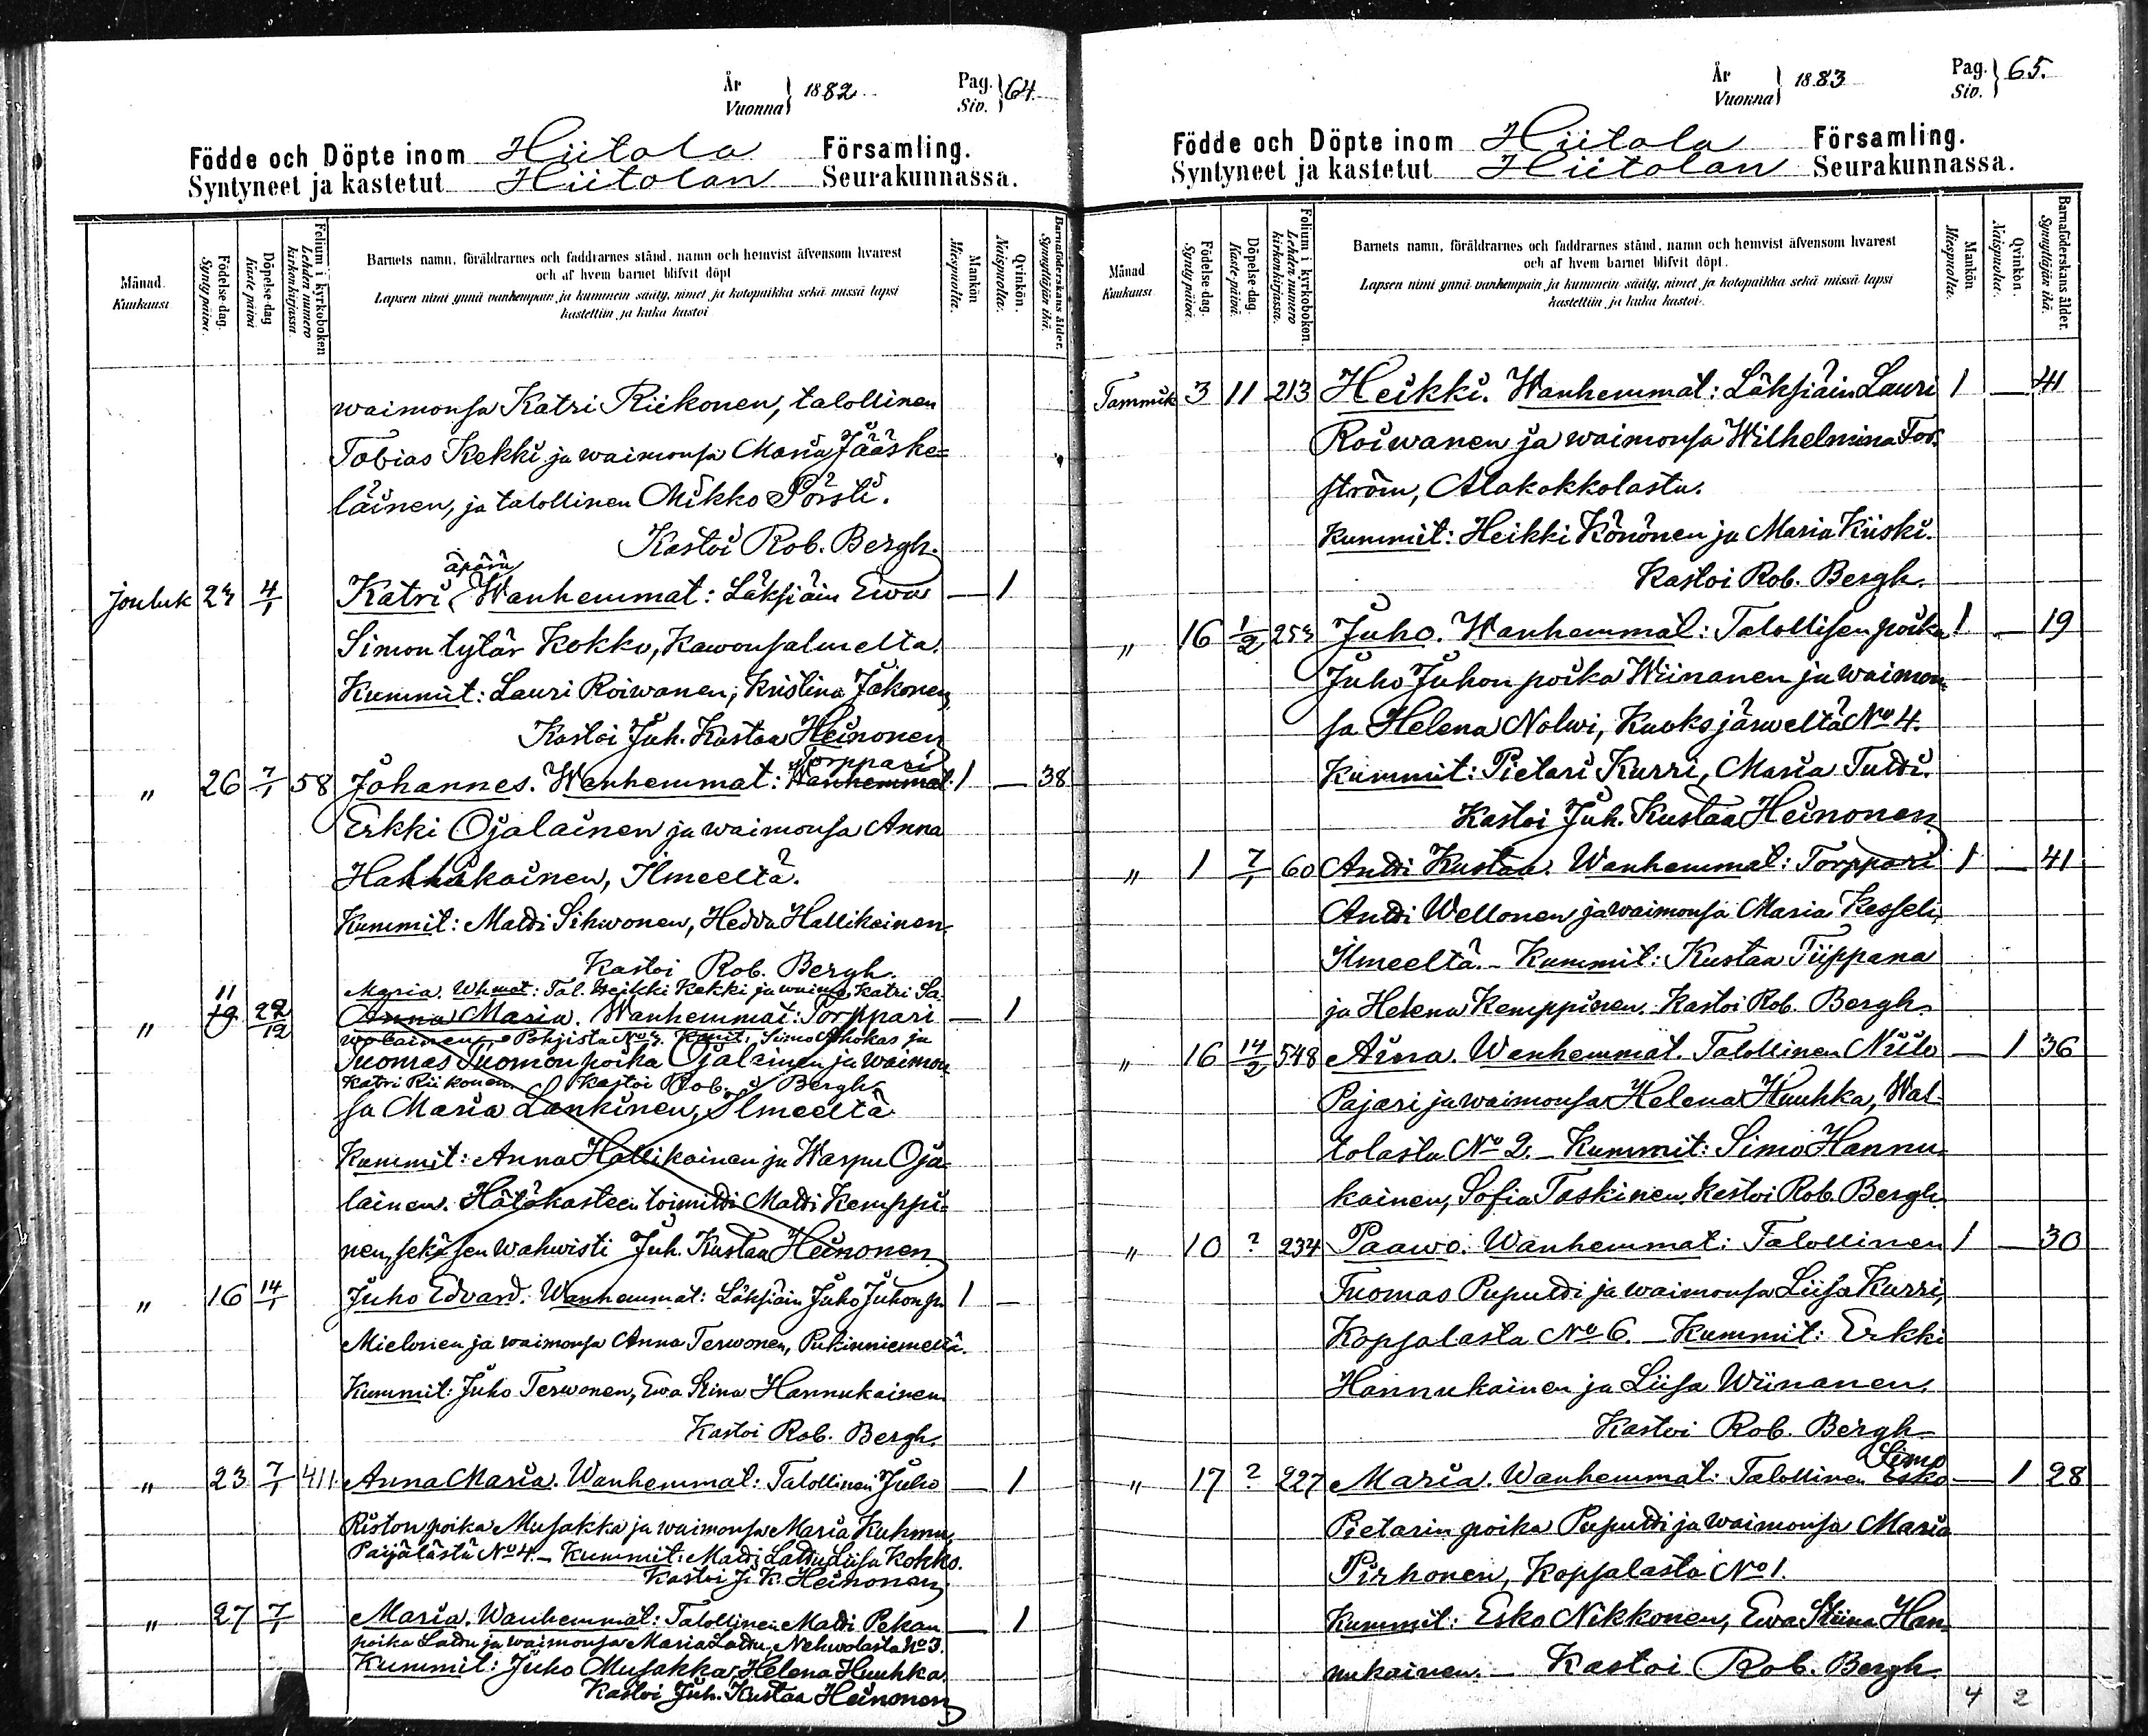 År
Vuonna } 1882
Pag.
Siv. } 64.
Födde och Döpte inom Hiitola Församling.
Syntyneet ja kastetut Hiitolan Seurakunnassa.
Månad. Kuukausi.
Födelse-dag. Syntypäivä.
Döpelse-dag Kaste päivä
Folium i kyrkoboken Lehden numero kirkonkirjassa.
Barnets namn, föräldrarnes och faddrarnes stånd, namn och hemvist äfvensom hvarest
och af hvem barnet blifvit döpt
Lapsen nimi ynnä vanhempain ja kummein sääty, nimet ja kotopaikka sekä missä lapsi
kastettiin ja kuka kastoi
Mankön. Miespuolta.
Qvinkön. Naispuolta.
Barnaföderskans ålder. Synnyttäjän ikä.
waimonsa Katri Riikonen, talollinen
Tobias Kekki ja waimonsa Maria Jääske-
läinen, ja talollinen Mikko Pörsti.
Kastoi Rob. Bergh.
äpärä
Jouluk 23 4/1 Katri, Wanhemmat: Läksiäin Ewa — 1
Simon tytär Kokko, Kawonsalmelta.
Kummit: Lauri Roiwanen, Kristina Jäkonen,
Kastoi Juh. Kustaa Heinonen
Torppari
" 26 7/1 58 Johannes. Wanhemmat: Wanhemmat: 1 — 38
Erkki Ojalainen ja waimonsa Anna
Hallikainen, Ilmeeltä.
Kummit: Matti Sihwonen, Hedda Hallikainen
Kastoi Rob. Bergh.
Maria. Whmat: Tal. Heikki Kekki ja waimo Katri Sa-
" 11 19 22/12 Anna Maria. Wanhemmat: Torppari — 1
wolainen, Pohjista No 3. Kmit: Simo Ahokas ja
Tuomas Tuomonpoika Ojalainen ja waimon
Katri Riikonen. Kastoi Rob. Bergh
sa Maria Lankinen, Ilmeeltä
Kummit: Anna Hallikainen ja Warpu Oja-
lainen. Hätäkasteen toimitti Matti Kemppi-
nen, sekä sen wahwisti Juh. Kustaa Heinonen.
" 16 14/1 Juho Edvard. Wanhemmat: Läksiäin Juho Juhonp. 1 —
Mielonen ja waimonsa Anna Terwonen, Pukinniemeltä.
Kummit: Juho Terwonen, Ewa Stina Hannukainen.
Kastoi Rob. Bergh.
" 23 7/1 411. Anna Maria. Wanhemmat: Talollinen Juho — 1
Riston poika Musakka ja waimonsa Maria Kuhmu,
Paijälästä No 4. – Kummit: Matti Lattu, Liisa Kokko.
Kastoi J. K. Heinonen
" 27 7/1 Maria. Wanhemmat: Talollinen Matti Pekan — 1
poika Lattu ja waimonsa Maria Lattu, Nehwolasta No 3.
Kummit: Juho Musakka, Helena Huuhka.
Kastoi Juh. Kustaa Heinonen
År
Vuonna } 1883
Pag.
Siv. } 65.
Födde och Döpte inom Hiitola Församling.
Syntyneet ja kastetut Hiitolan Seurakunnassa.
Månad Kuukausi.
Födelse-dag. Syntypäivä.
Döpelse-dag. Kaste-päivä.
Folium i kyrkoboken. Lehden numero kirkonkirjassa.
Barnets namn, föräldrarnes och faddrarnes stånd, namn och hemvist äfvensom hvarest
och af hvem barnet blifvit döpt.
Lapsen nimi ynnä vanhempain ja kummein sääty, nimet ja kotopaikka sekä missä lapsi
kastettiin ja kuka kastoi.
Mankön Miespuolta.
Qvinkön. Naispuolta.
Barnaföderskans ålder. Synnyttäjän ikä.
Tammik 3 11 213 Heikki. Wanhemmat: Läksiäin Lauri 1 — 41
Roiwanen ja waimonsa Wilhelmina Fors-
ström, Alakokkolasta.
Kummit: Heikki Könönen ja Maria Kiiski.
Kastoi Rob. Bergh.
" 16 1/2 253 Juho. Wanhemmat: Talollisen poika 1 — 19
Juho Juhon poika Wiinanen ja waimon-
sa Helena Nolwi, Kuoksjärweltä No 4.
Kummit: Pietari Kurri, Maria Tutti.
Kastoi Juh. Kustaa Heinonen
" 1 7/1 60 Antti Kustaa. Wanhemmat: Torppari 1 — 41
Antti Wellonen ja waimonsa Maria Kesseli,
Ilmeeltä. – Kummit: Kustaa Tiippana
ja Helena Kemppinen. Kastoi Rob. Bergh
" 16 14/2 548 Aina. Wanhemmat. Talollinen Niilo — 1 36
Pajari ja waimonsa Helena Huuhka, Wat-
tolasta No 2. – Kummit: Simo Hannu-
kainen, Sofia Taskinen. Kastoi Rob. Bergh.
" 10 ? 234 Paawo. Wanhemmat: Talollinen 1 — 30
Tuomas Puputti ja waimonsa Liisa Kurri,
Kopsalasta No 6. – Kummit: Erkki
Hannukainen ja Liisa Wiinanen.
Kastoi Rob. Bergh
Simo
" 17 ? 227 Maria. Wanhemmat: Talollinen Esko — 1 28
Pietarin poika Puputti ja waimonsa Maria
Pirhonen, Kopsalasta No 1.
Kummit: Esko Nikkonen, Ewa Stiina Han-
nukainen. – Kastoi Rob. Bergh.
4 2